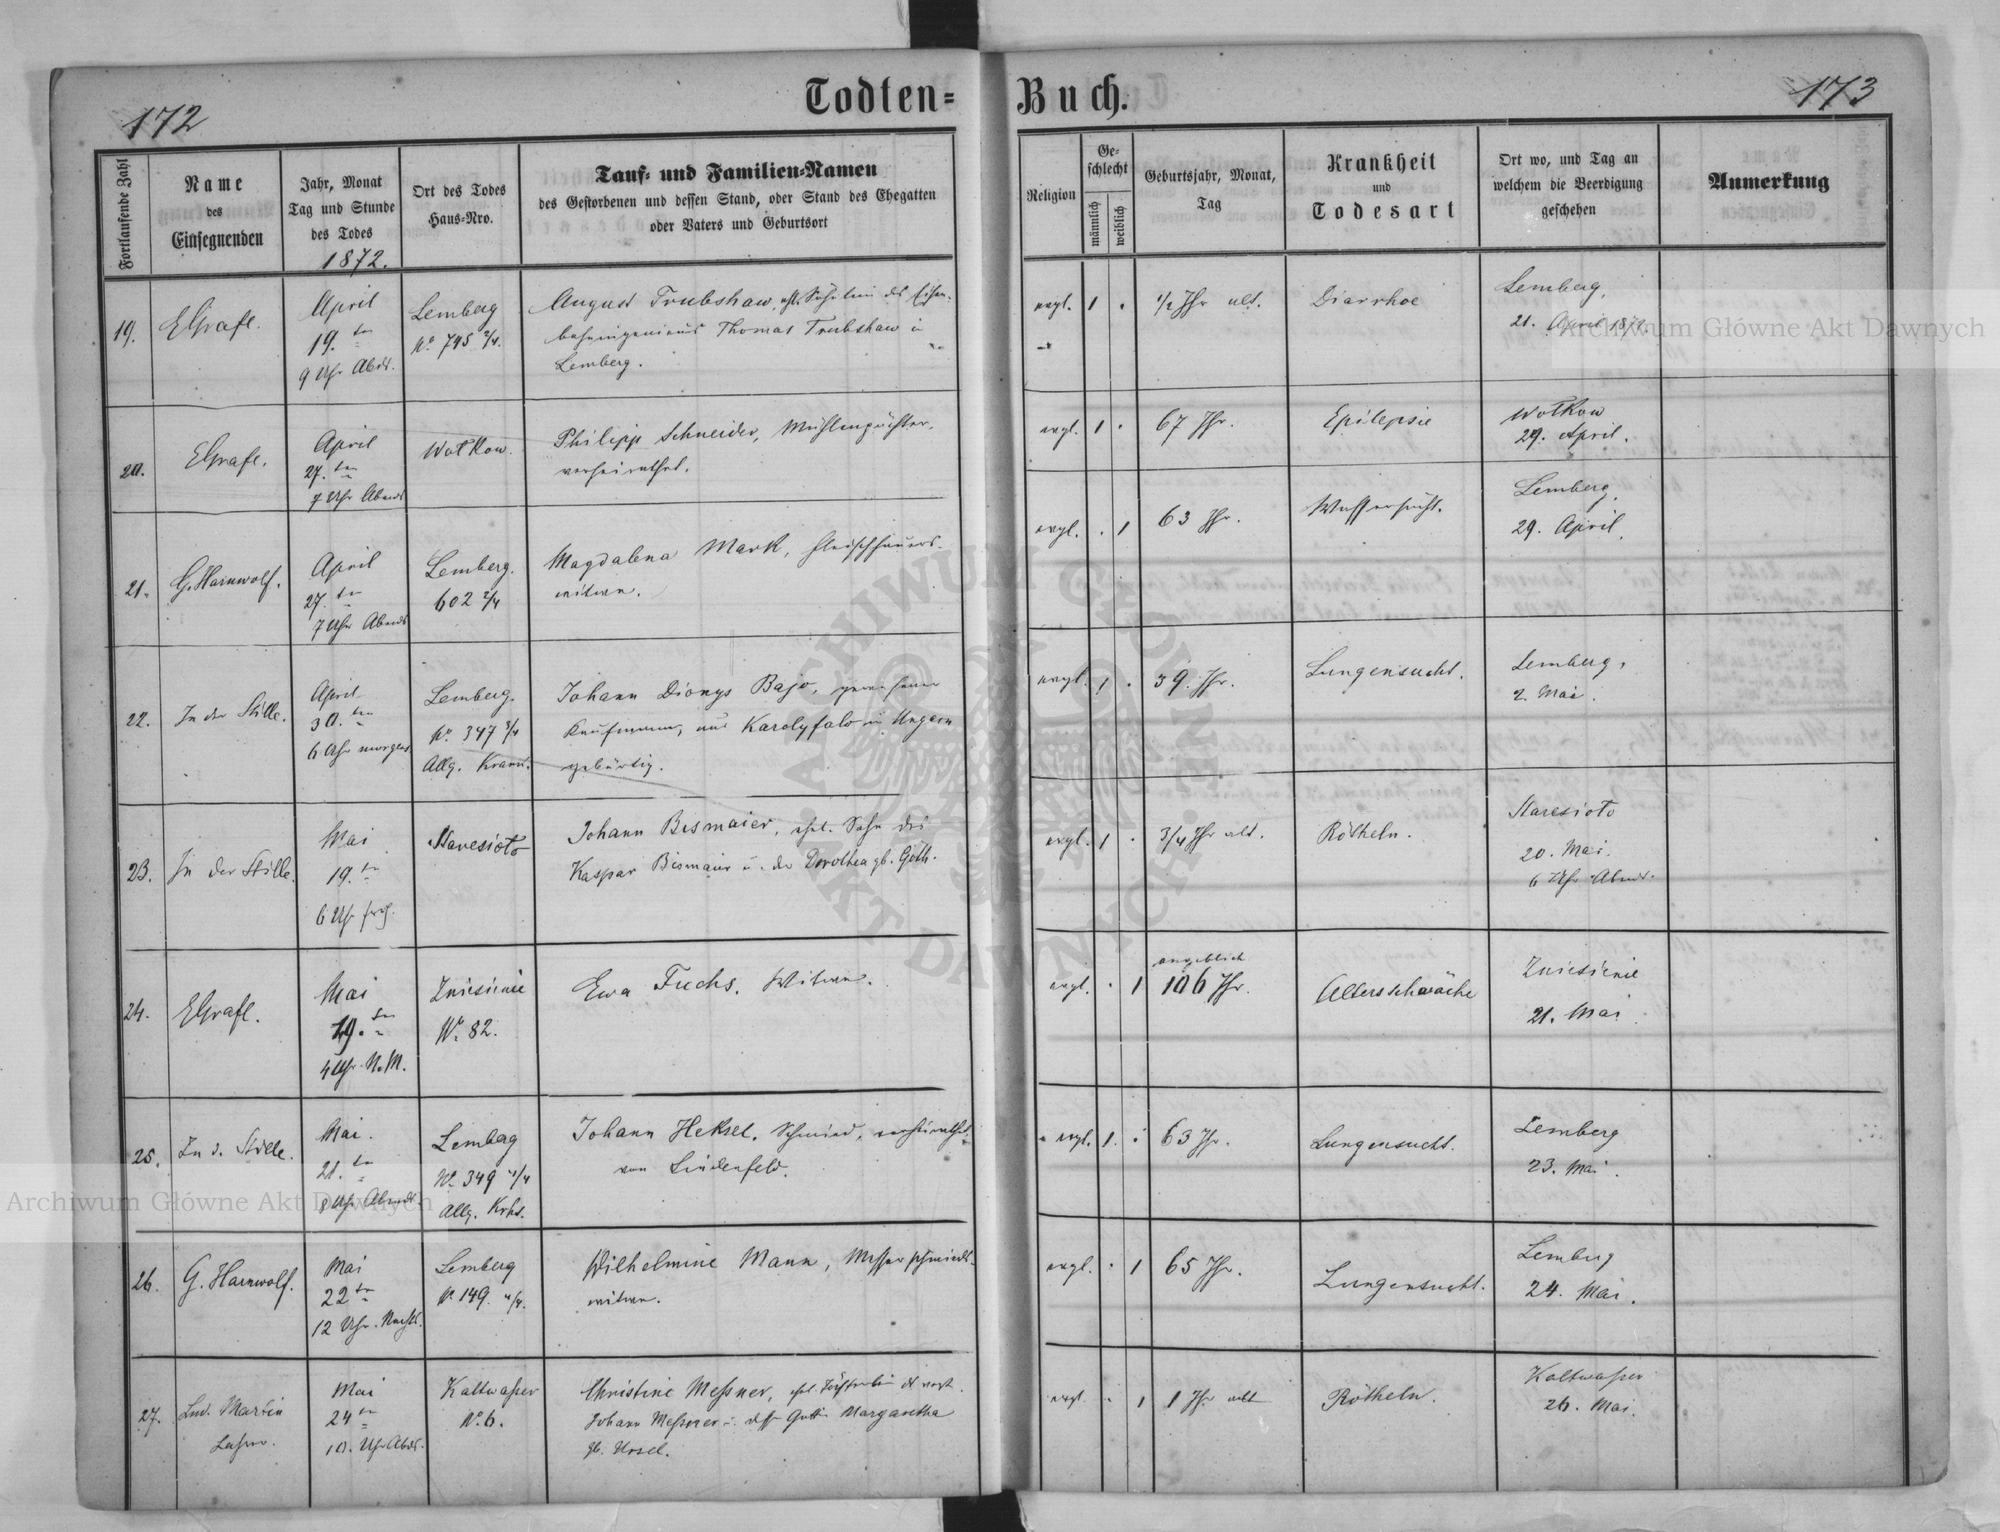 172
Todten=
Buch.
173
Fortlaufende Zahl
Name
des
Einsegnenden
Jahr, Monat
Tag und Stunde
des Todes
1872.
Ort des Todes
Haus-Nro.
Tauf- und Familien-Namen
des Gestorbenen und dessen Stand, oder Stand des Ehegatten
oder Vaters und Geburtsort
Religion
Ge-
schlecht
männlich
weiblich
Geburtsjahr, Monat,
Tag
Krankheit
und
Todesart
Ort wo, und Tag an
welchem die Beerdigung
geschehen
Anmerkung
19.
EGrafl.
April
19. ten
9 Uhr Abds.
Lemberg
No 795 2/4.
August Trubshaw, ehl. Söhnlein des Eisen-
bahningenieurs Thomas Trubshaw in
Lemberg.
evgl.
1
1/2 Jhr alt.
Diarrhoe
Lemberg,
21. April 1872.
20.
EGrafl.
April
27. ten
7 Uhr Abends
Wolkow.
Philipp Schneider, Mühlenpächter,
verheirathet.
evgl.
1
67 Jhr.
Epilepsie
Wolkow
29. April.
21.
G. Hainwolf.
April
27. ten
7 Uhr Abends
Lemberg.
602 2/4
Magdalena Mark, Fleischhauers-
witwe.
evgl.
1
63 Jhr.
Wassersucht.
Lemberg,
29. April.
22.
In der Stille.
April
30. ten
6 Uhr morgens
Lemberg.
No. 347 3/4
Allg. Krank.
Johann Dionys Bajo, gewesener
Kaufmann, aus Karolyfalo in Ungarn
gebürtig.
evgl.
1
59 Jhr.
Lungensucht.
Lemberg,
2. Mai.
23.
In der Stille.
Mai
19. ten
6 Uhr früh.
Staresioto
Johann Bismaier, ehl. Sohn des
Kaspar Bismaier u. der Dorothea gb. Göth.
evgl.
1
3/4 Jhr alt.
Rötheln.
Staresioto
20. Mai.
6 Uhr Abends.
24.
EGrafl.
Mai
19. ten
4 Uhr N.M.
Zniesienie
No. 82.
Ewa Fuchs. Witwe.
evgl.
1
angeblich
106 Jhr.
Altersschwäche
Zniesienie
21. Mai
25.
In d. Stille.
Mai.
21. ten
8 Uhr Abends.
Lemberg
No. 349 4/4
Allg. Krhs.
Johann Heksel. Schmied, verheirathet
von Lindenfeld.
evgl.
1.
63 Jhr.
Lungensucht.
Lemberg
23. Mai.
26.
G. Hainwolf.
Mai
22 ten
12 Uhr. Nachts.
Lemberg
No. 149. 4/4.
Wilhelmine Mann, Messerschmieds-
witwe.
evgl.
1
65 Jhr.
Lungensucht.
Lemberg
24. Mai.
27.
Lud. Martin
Lehrer.
Mai
24 ten
10. Uhr Abds.
Kaltwasser
No. 6.
Christine Messner, ehl. Töchterlein d. verst.
Johann Messner u. dess. Gattin Margaretha
gb. Ursel.
evgl.
1
1 Jhr alt
Rötheln.
Kaltwasser
26. Mai.
Archiwum Główne Akt Dawnych
ARCHIWUM GŁÓWNE AKT DAWNYCH
Archiwum Główne Akt Dawnych